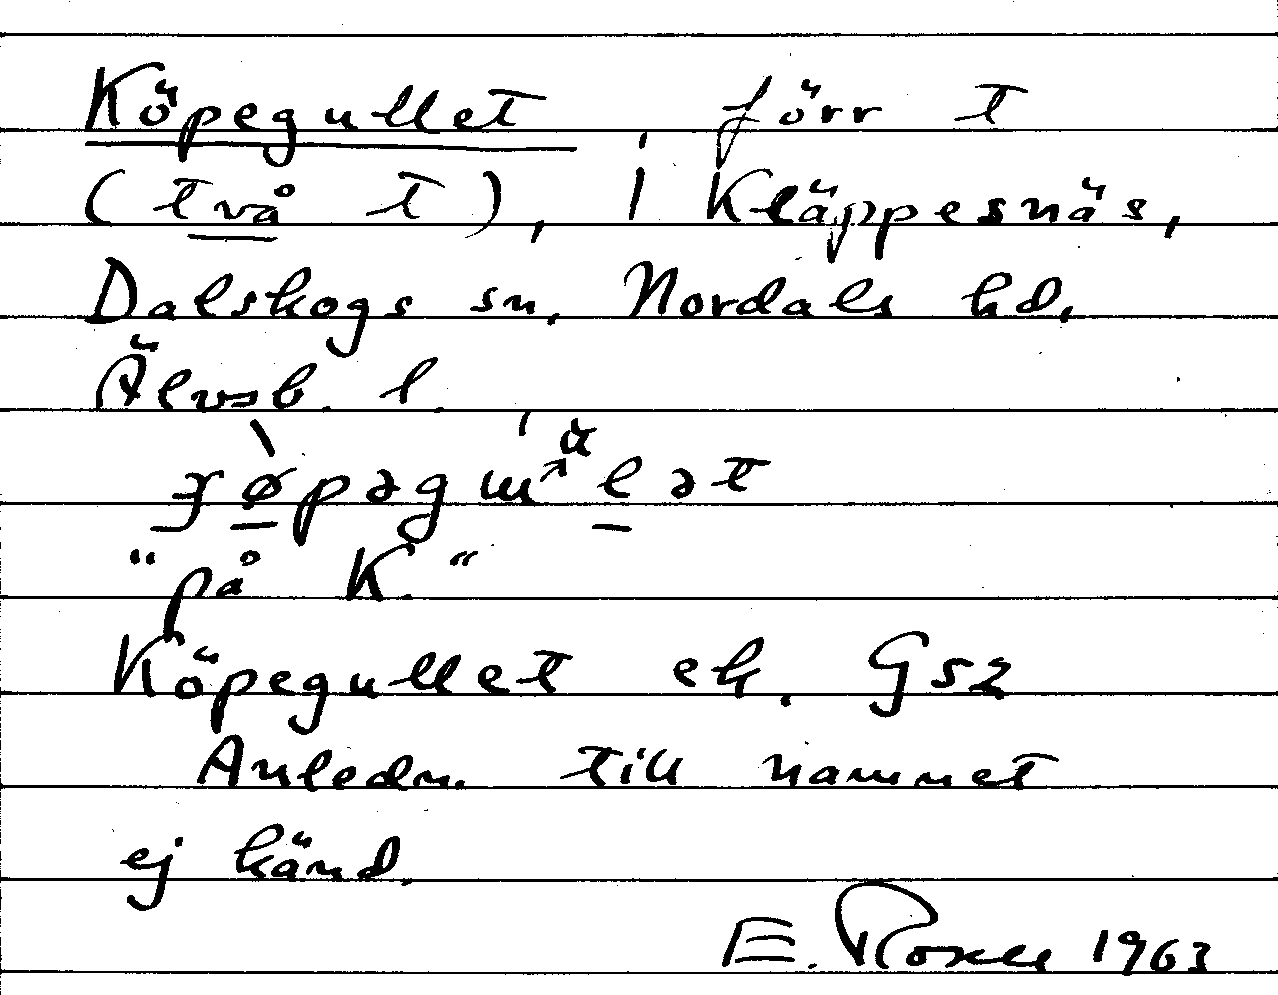 Köpegullet, förr t
(två t), i Kläppesnäs,
Dalskogs sn, Nordals hd,
Älvsb. l.
"på K."
Köpegullet ek. G52
Anledn. till namnet
ej känd.
E. Rosell 1963